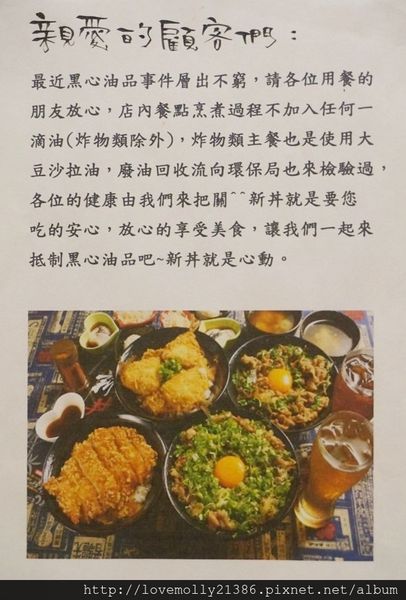 親愛的顧客們：
最近黑心油品事件層出不窮，請各位用餐的
朋友放心，店內餐點烹煮過程不加入任何一
滴油(炸物類除外)，炸物類主餐也是使用大
豆沙拉油，廢油回收流向環保局也來檢驗過，
各位的健康由我們來把關^^新丼就是要您
吃的安心，放心的享受美食，讓我們一起來
抵制黑心油品吧~新丼就是心動。
http://lovemolly21386.pixnet.net/album